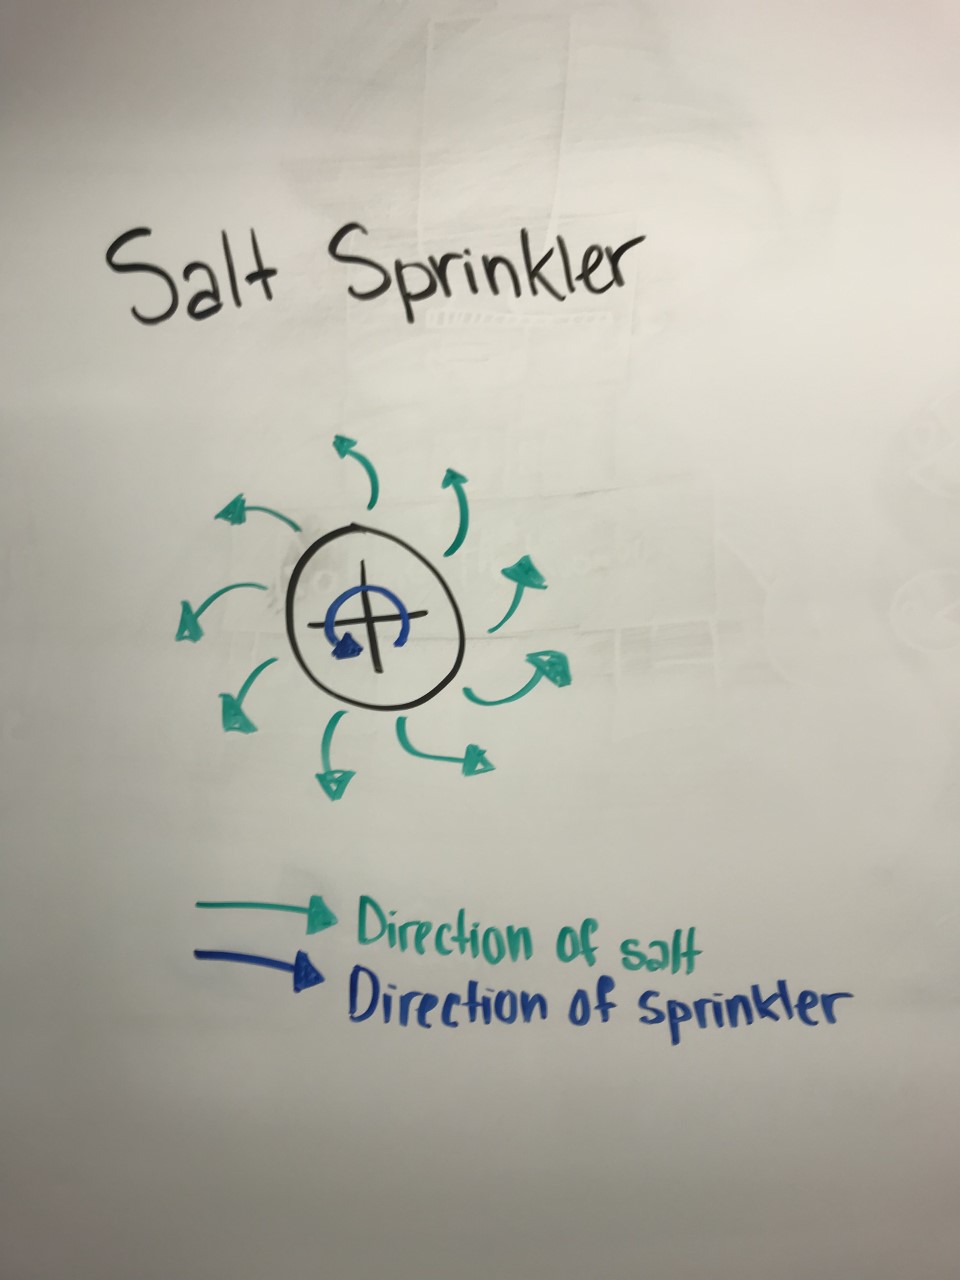 Salt Sprinkler
Direction of salt
Direction of sprinkler